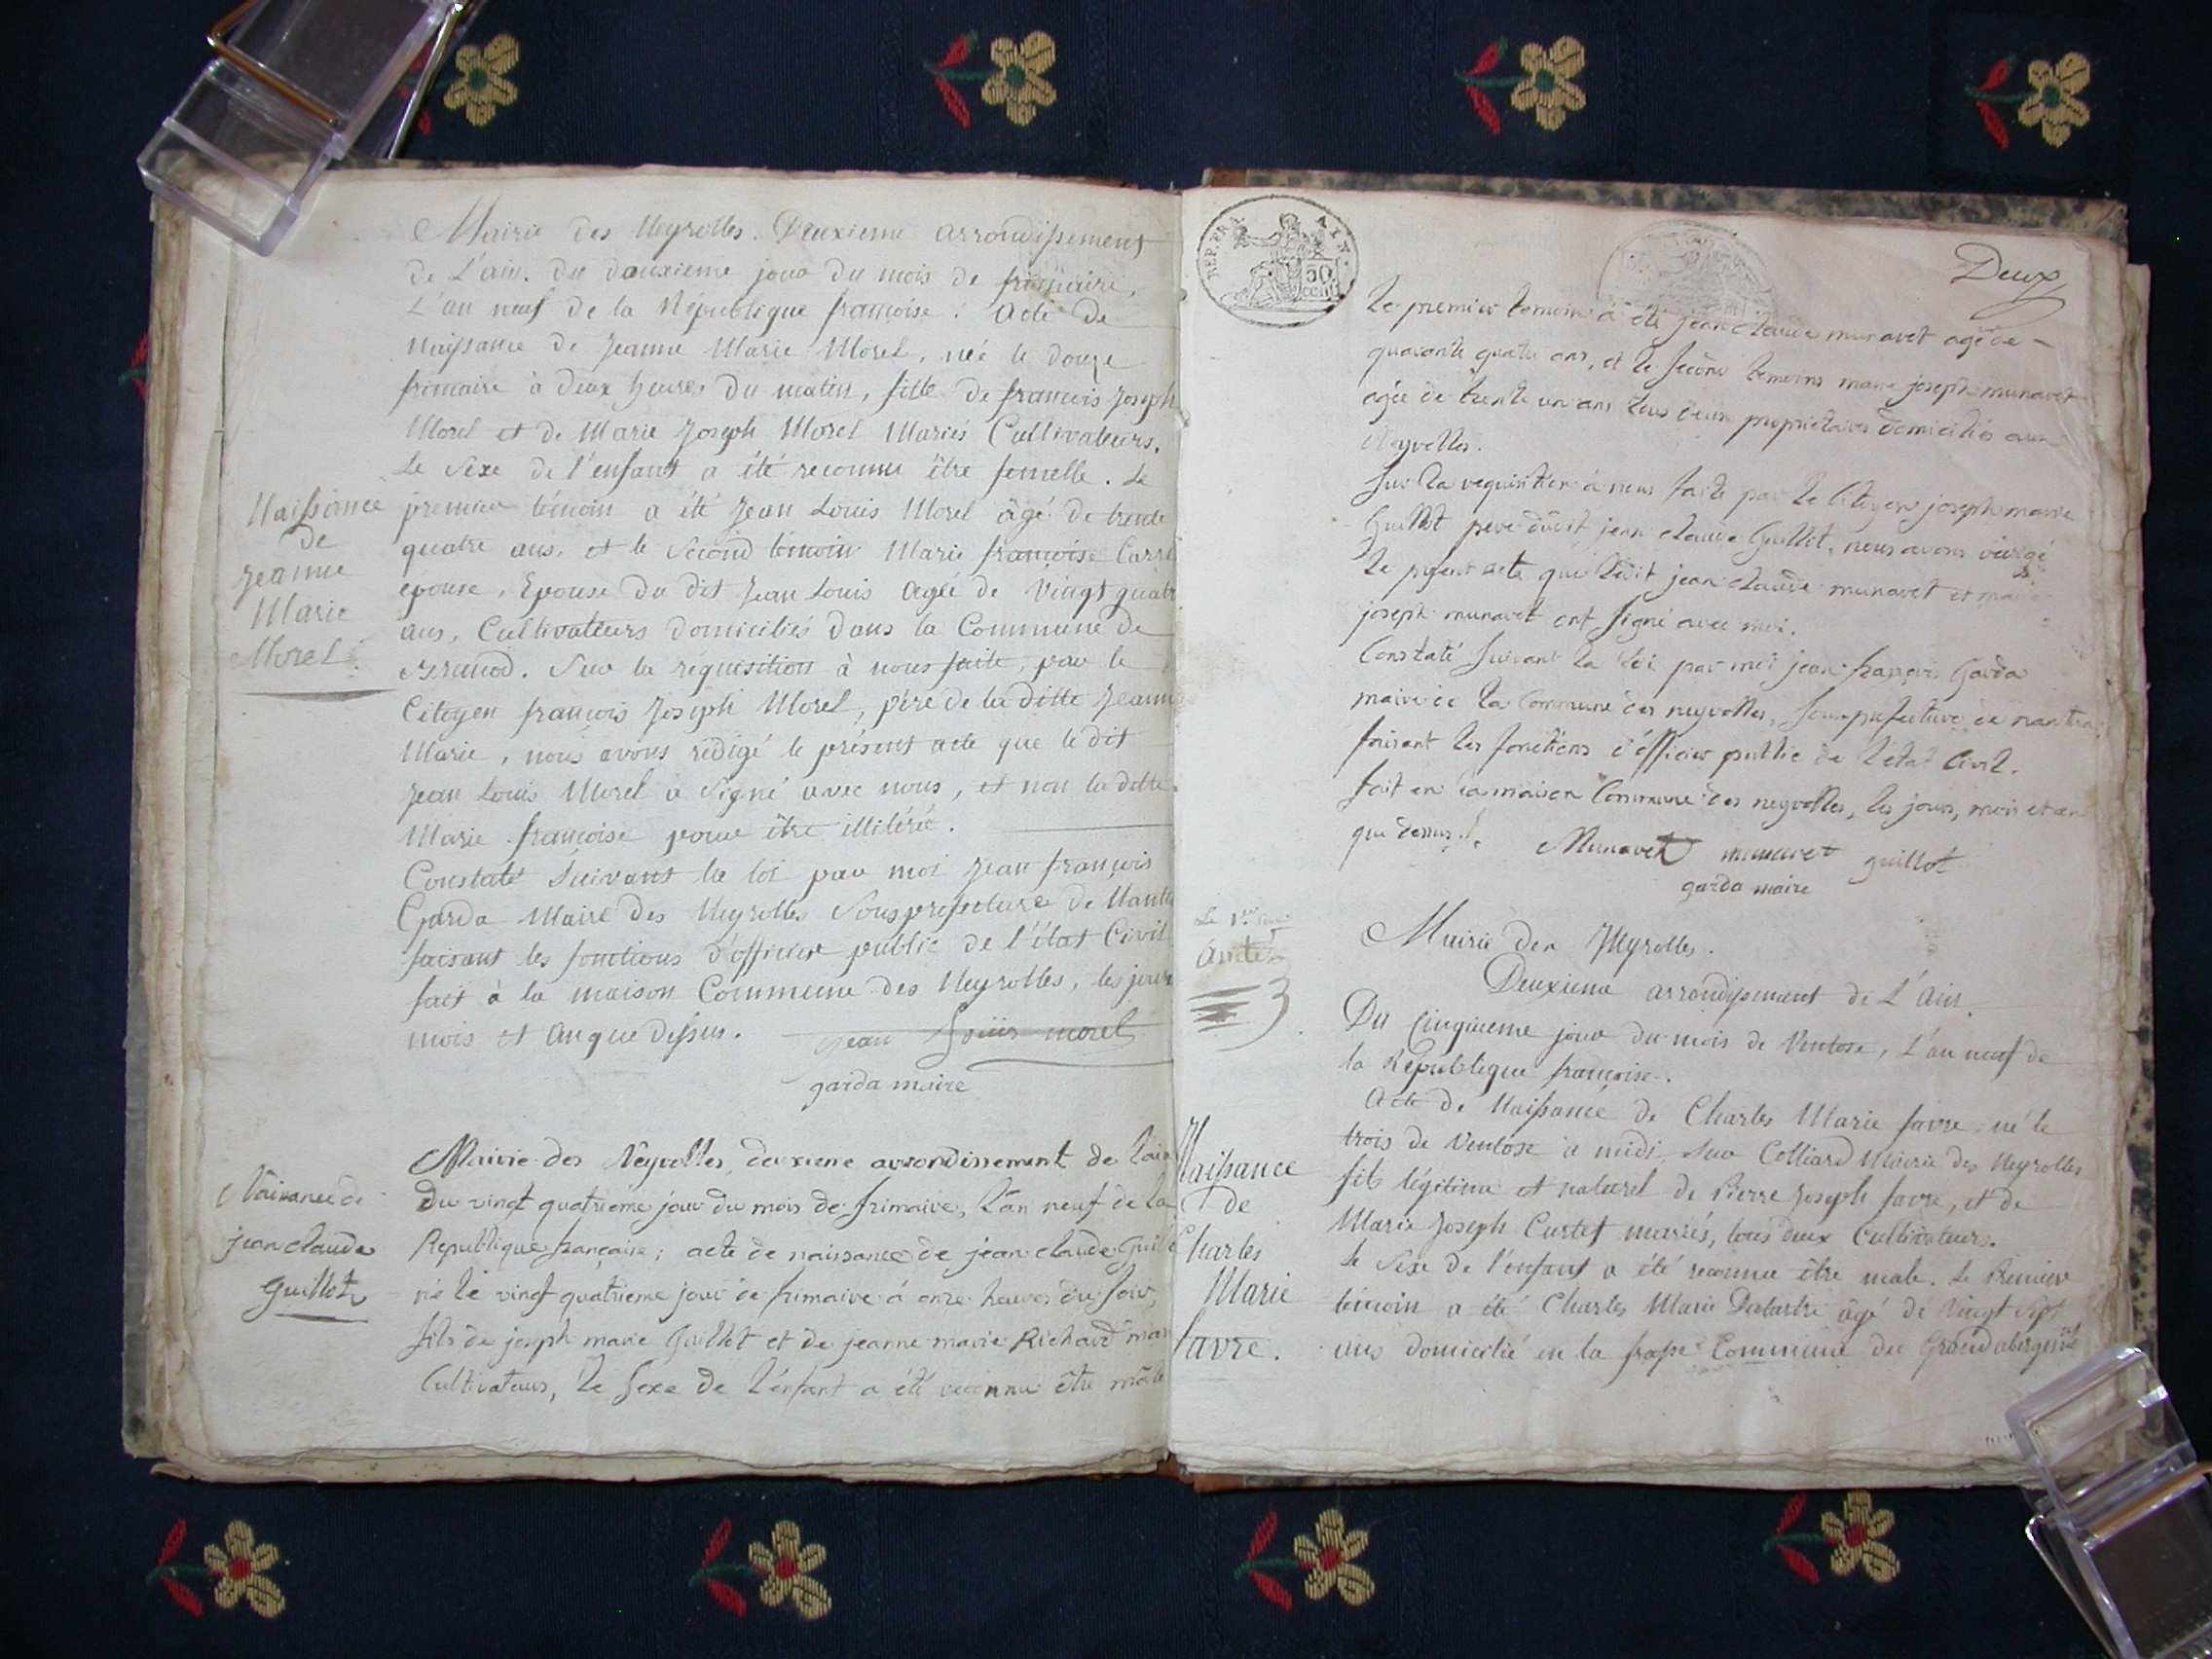 Mairie des Neyrolles. Deuxieme arrondissement
de L'ain. du douxieme jour du mois de frimaire,
L'an neuf de la République françoise. Acte de
Naissance de Jeanne Marie Morel, née le douze
frimaire à deux heures du matin, fille de françois Joseph
Morel et de Marie Joseph Morel Mariés Cultivateurs.
Le Sexe de l'enfant a été reconnu être femelle. Le
premier témoin a été Jean Louis Morel âgé de trente
quatre ans, et le Second témoin Marie françoise
épouse, Epouse du dit Jean Louis Agée de Vingt quatr
ans, Cultivateurs domiciliés dans la Commune de
Brenod. Sur la réquisition à nous faite, par le
Citoyen françois Joseph Morel, père de la ditte Jeanne
Marie, nous avons rédigé le présent acte que le dit
Jean Louis Morel a Signé avec nous, et non la ditte
Marie françoise pour être illitéré.
Constaté Suivant la loi par moi Jean françois
Garda Maire des Neyrolles Sousprefecture de Nantu
faisant les fonctions d'officier public de l'état Civil
fait à la maison Commune des Neyrolles, les jour
mois et an que dessus. Jean Louis morel
garda maire
Naissance
de
Jeanne
Marie
Morel
Mairie des Neyrolles, deuxieme arrondissement de Lain
Du vingt quatrième jour du mois de frimaire, L'an neuf de la
Republique française; acte de naissance de jean claude Guill
né le vingt quatrieme jour de frimaire à onze heures du soir,
fils de joseph marie Guillot et de jeanne marie Richard mar
Cultivateurs, le sexe de l'enfant a été reconnu être mâle
Naissance de
jean claude
Guillot
REP. FRA. AIN.
50 cent
Deux
Le premier temoin a été jean claude munavet agé de
quarante quatre ans, et le second temoins marie joseph munavet
agée de trente un ans tous deux proprietaires domiciliés aux
Neyrolles.
Sur la requisition à nous faite par le Citoyen joseph marie
Guillot pere dudit jean claude Guillot, nous avons redigé
le present acte que ledit jean claude munavet et marie
joseph munavet ont signé avec moi.
Constaté suivant la loi par moi jean françois Garda
maire de la Commune des neyrolles, sousprefecture de nantua,
faisant les fonctions d'officier public de l'etat Civil.
fait en la maison Commune des neyrolles, les jour, mois et an
que dessus. Munavet munavet guillot
garda maire
Mairie des Neyrolles.
Deuxieme arrondissement de L'ain.
Du Cinquieme jour du mois de Ventose, L'an neuf de
la République françoise.
Acte de Naissance de Charles Marie favre né le
trois de Ventose a midi, Sur Colliard Mairie des Neyrolles
fils légitime et naturel de Pierre Joseph favre, et de
Marie Joseph Curtet mariés, tous deux Cultivateurs.
Le Sexe de l'enfant a été reconnu être male. Le Premier
témoin a été Charles Marie Delastre âgé de Vingt Sept
ans domicilié en la Commune du Grand abergement
Naissance
de
Charles
Marie
favre.